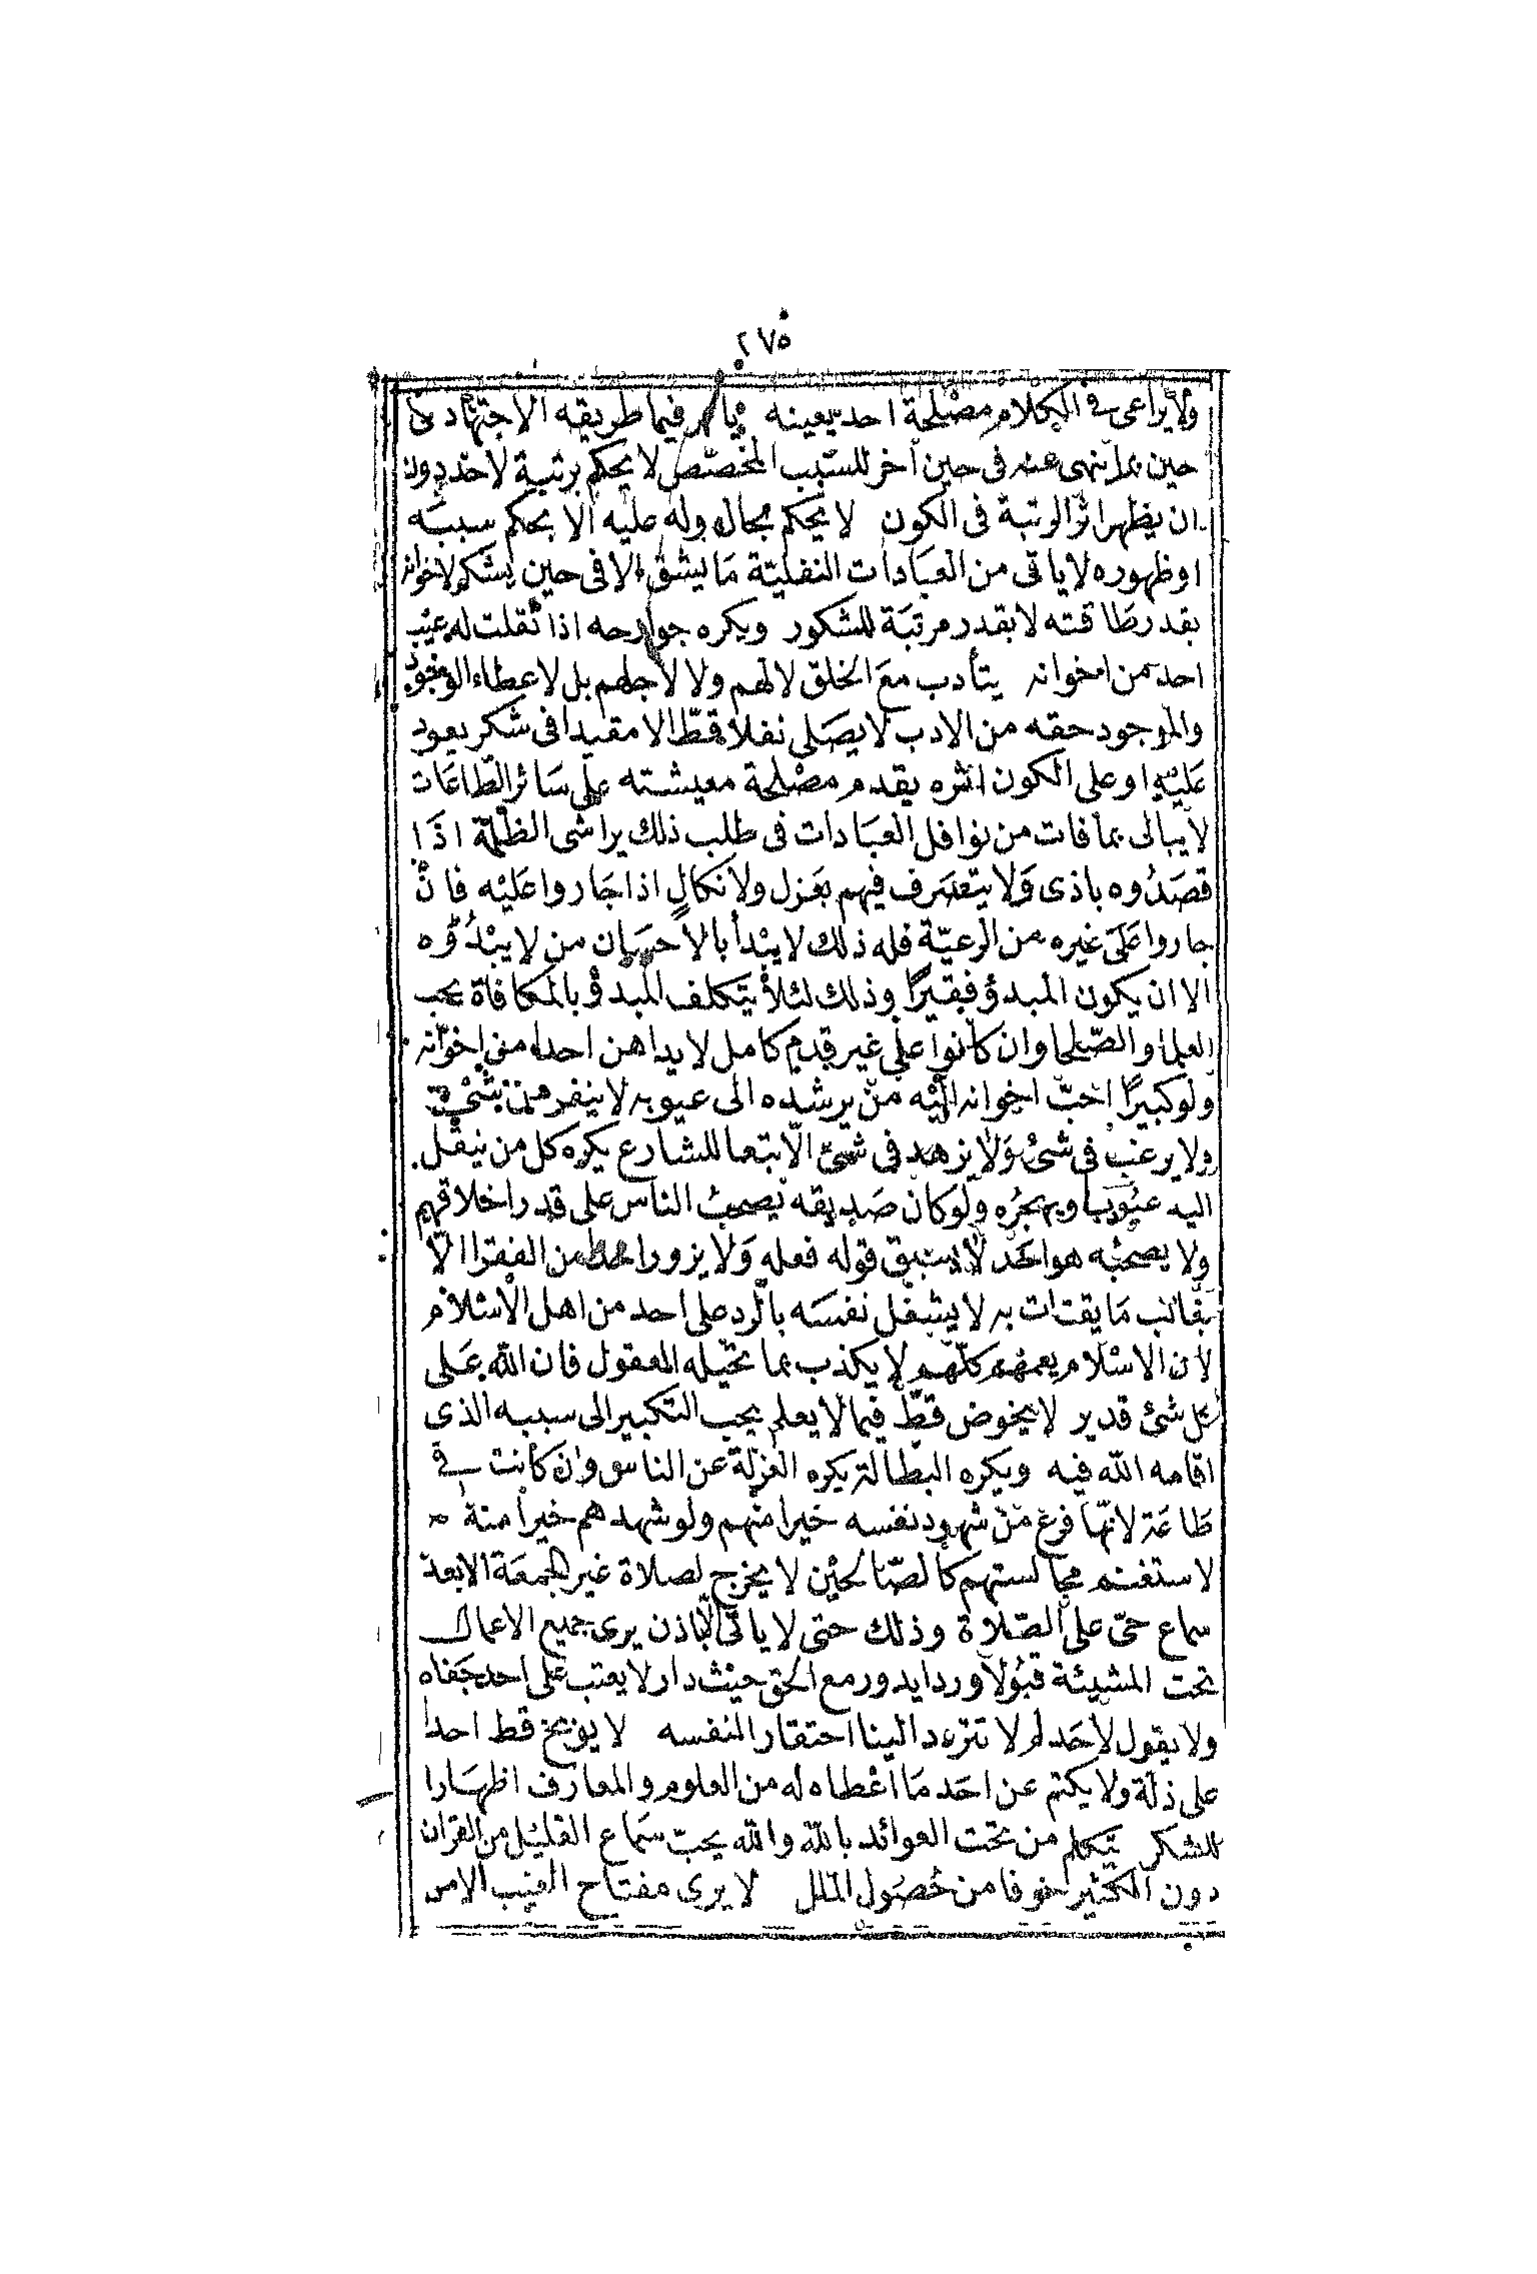 ٢٧٥
ولا يراعى فى الكلام مصلحة احد بعينه يامر فيما طريقه الاجتهاد فى
حين بما ينهى عنه فى حين اخر للسبب المخصص لا يحكم برتبة لاحد دون
ان يظهر اثر الرتبة فى الكون لا يحكم بحال وله عليه الا بحكم سببه
او ظهوره لا ياتى من العبادات النفلية ما يشق الا فى حين يشكر لاخوانه
بقدر طاقته لا بقدر مرتبة المشكور ويكره جوارحه اذا نقلت له عيب
احد من اخوانه يتأدب مع الخلق لا لهم ولا لاجلهم بل لاعطاء الوجود
والموجود حقه من الادب لا يصلى نفلا قط الا مقيدا فى شكر يعود
عليه او على الكون اثره يقدم مصلحة معيشته على سائر الطاعات
لا يبالى بما فات من نوافل العبادات فى طلب ذلك يراشى الظلمة اذا
قصدوه باذى ولا يتصرف فيهم بعزل ولا نكال اذا جاروا عليه فان
جاروا على غيره من الرعية فله ذلك لا يبدأ بالاحسان من لا يبدؤه
الا ان يكون المبدؤ فقيرا وذلك لئلا يتكلف المبدؤ بالمكافاة يحب
العلما والصلحا وان كانوا على غير قدم كامل لا يداهن احدا من اخوانه
ولو كبيرا احب اخوانه اليه من يرشده الى عيوبه لا ينفر من شئ
ولا يرغب فى شئ ولا يزهد فى شئ الا تبعا للشارع يكره كل من ينقل
اليه عيوبا ويهجره ولو كان صديقه يصحب الناس على قدر اخلاقهم
ولا يصحبه هو احد لا يسبق قوله فعله ولا يزور احدا من الفقرا الا
بغالب ما يقتات به لا يشغل نفسه بالرد على احد من اهل الاسلام
لان الاسلام يعمهم كلهم لا يكذب بما تحيله العقول فان الله على
كل شئ قدير لا يخوض قط فيما لا يعلم يحب التكبير الى سببه الذى
اقامه الله فيه ويكره البطالة يكره العزلة عن الناس وان كانت فى
طاعة لانها فرع من شهود نفسه خيرا منهم ولو شهدهم خيرا منه
لاستغنم مجالستهم كالصالحين لا يخرج لصلاة غير الجمعة الا بعد
سماع حى على الصلاة وذلك حتى لا ياتى الا باذن يرى جميع الاعمال
تحت المشيئة قبولا وردا يدور مع الحق حيث دار لا يعتب على احد جفاه
ولا يقول لاحد لم لا تتردد الينا احتقارا لنفسه لا يوبخ قط احدا
على ذلة ولا يكتم عن احد ما اعطاه له من العلوم والمعارف اظهارا
للشكر يتكلم من تحت العوائد بالله والله يحب سماع القليل من القران
دون الكثير خوفا من حصول الملل لا يرى مفتاح الغيب الامر